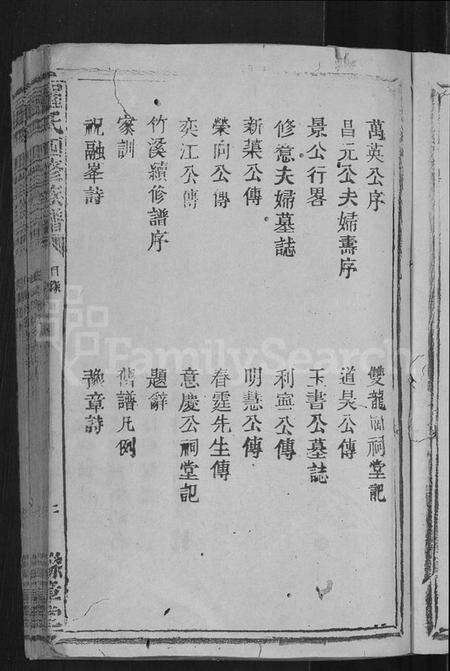 萬英公序
雙龍洞祠堂記
昌元公夫婦壽序
道昊公傳
景公行畧
玉書公墓誌
修意夫婦墓誌
利寧公傳
新菜公傳
明慧公傳
榮向公傳
春霆先生傳
奕江公傳
意慶公祠堂記
竹溪續修譜序
題辭
家訓
舊譜凡例
祝融峯詩
豫章詩
氏四修族譜
目錄
二
豫章堂
FamilySearch